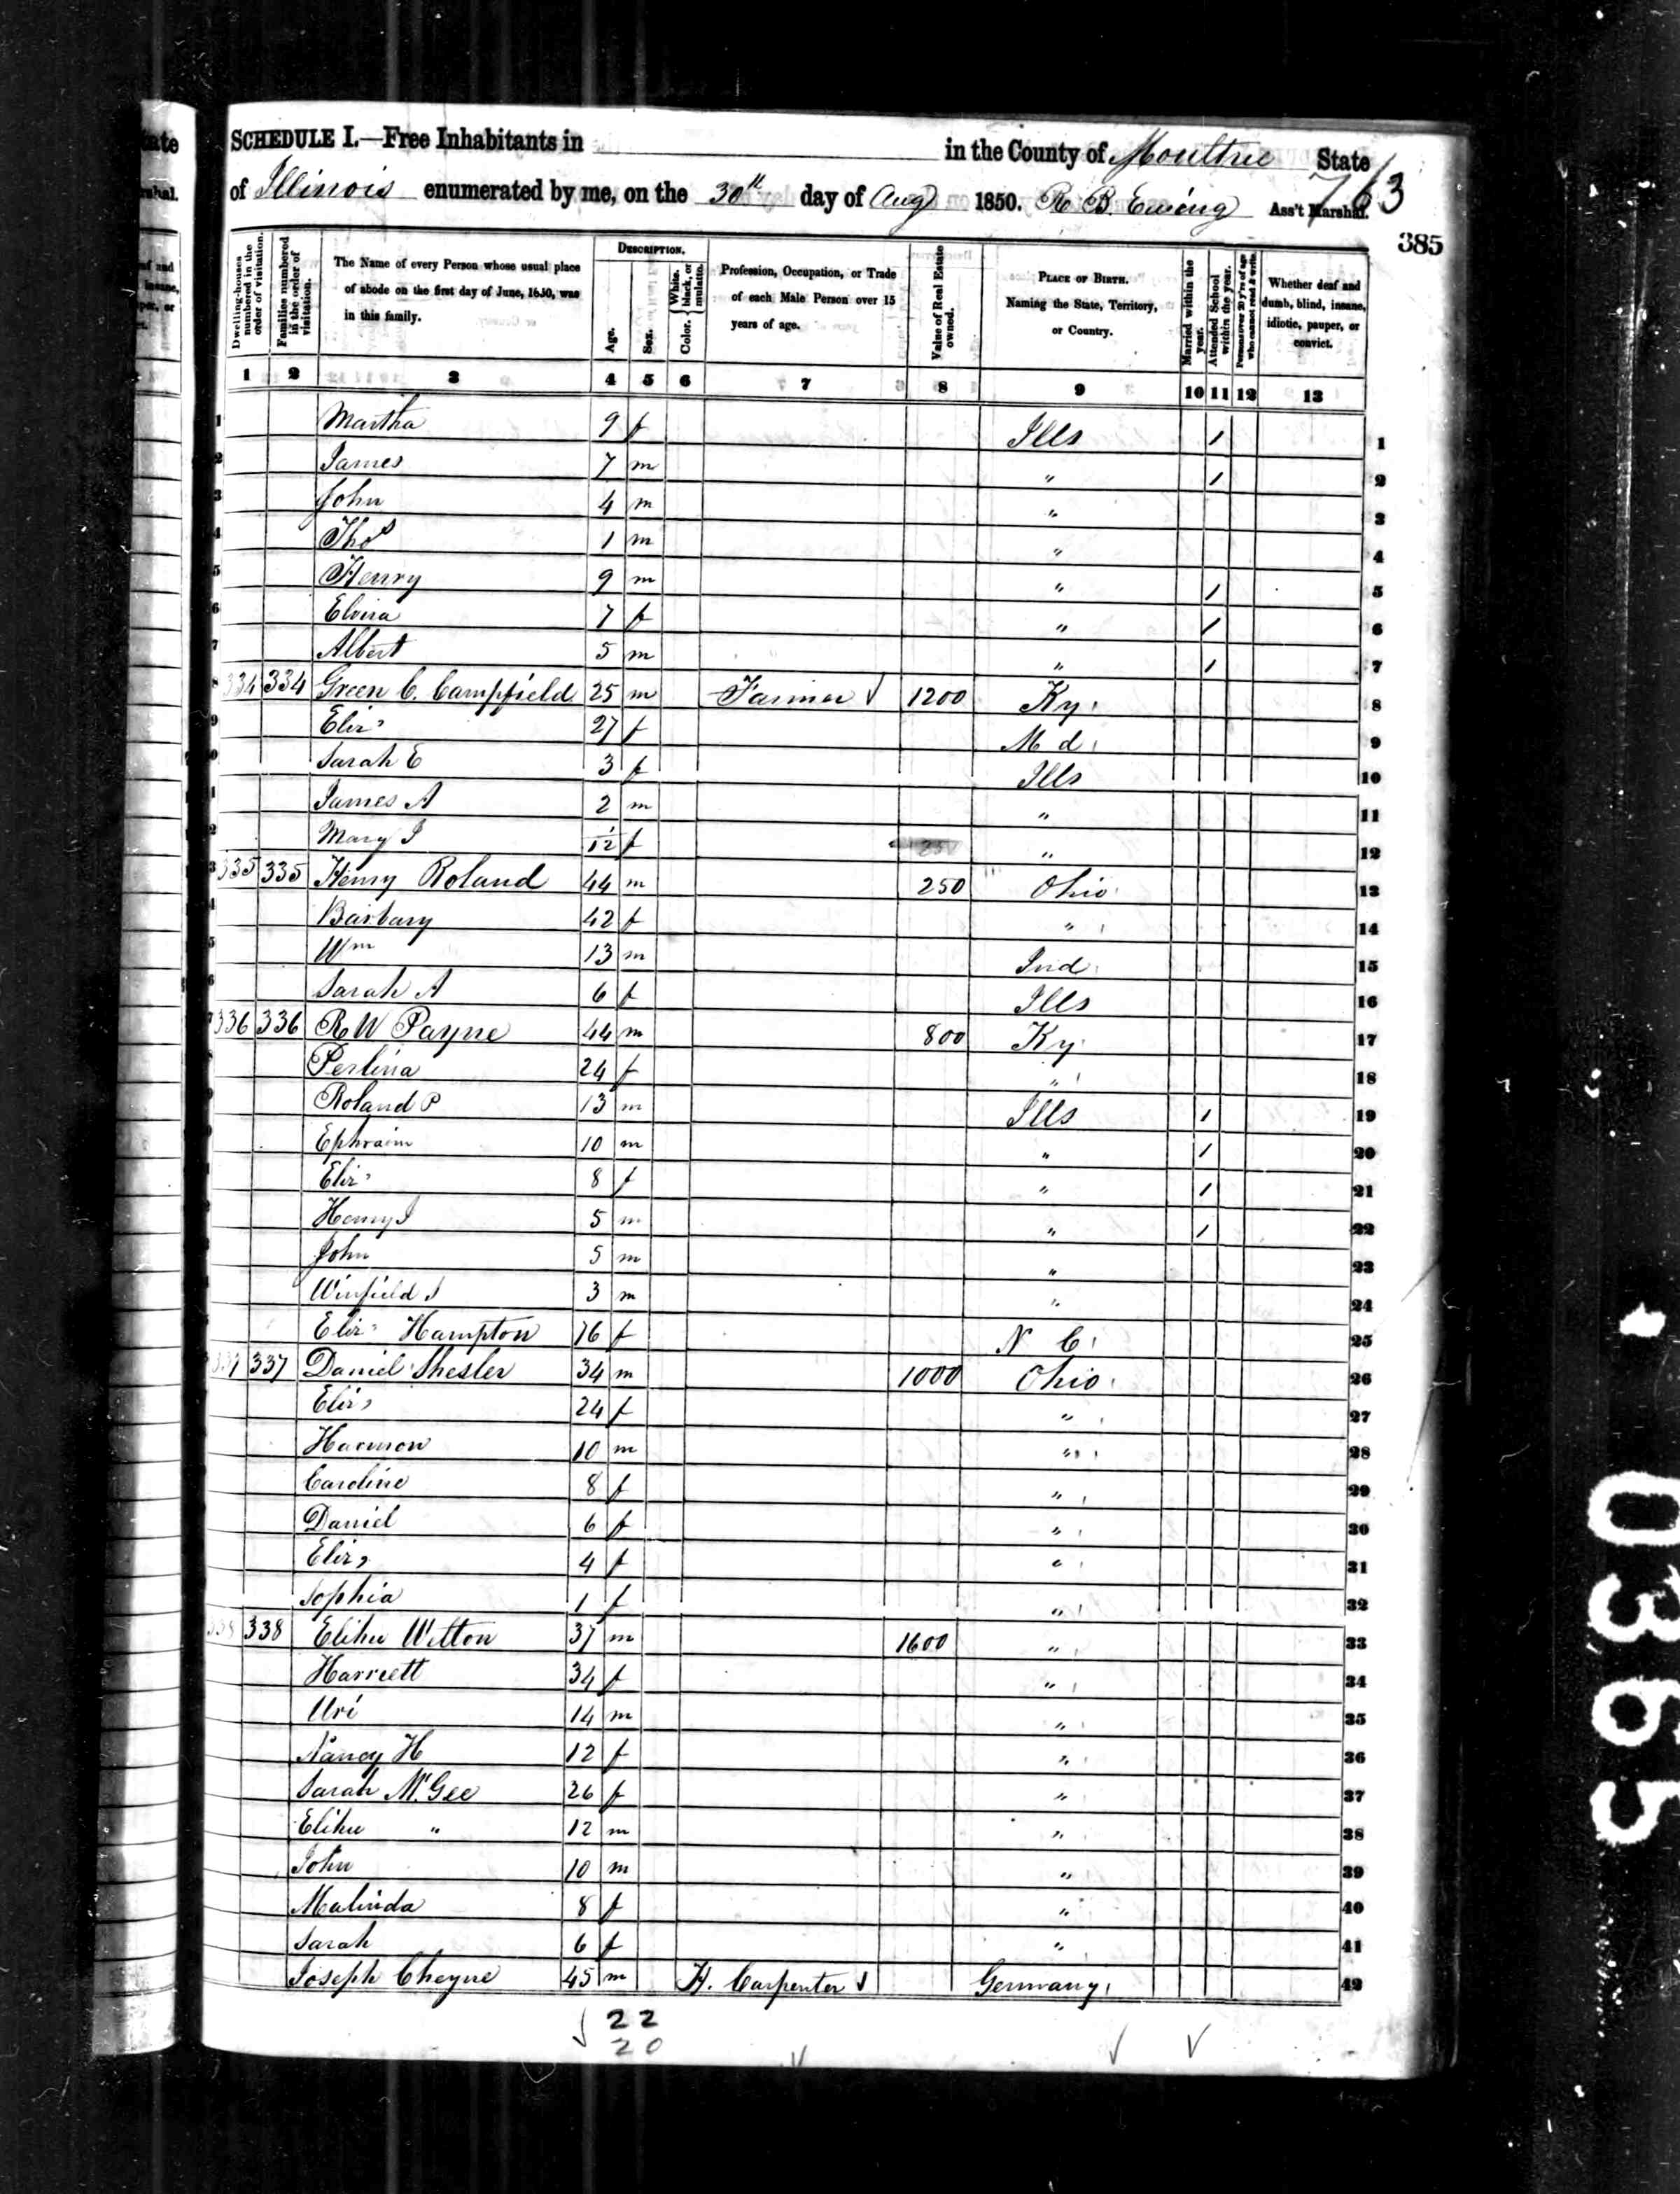 SCHEDULE I.—Free Inhabitants in in the County of Moultrie State
of Illinois enumerated by me, on the 30th day of Aug 1850. R B. Ewing Ass't Marshal.
763
385
Dwelling-houses numbered in the order of visitation.
Families numbered in the order of visitation.
The Name of every Person whose usual place of abode on the first day of June, 1850, was in this family.
DESCRIPTION.
Age.
Sex.
Color. White, black, or mulatto.
Profession, Occupation, or Trade of each Male Person over 15 years of age.
Value of Real Estate owned.
PLACE OF BIRTH. Naming the State, Territory, or Country.
Married within the year.
Attended School within the year.
Persons over 20 y'rs of age who cannot read & write.
Whether deaf and dumb, blind, insane, idiotic, pauper, or convict.
1 2 3 4 5 6 7 8 9 10 11 12 13
1 Martha 9 f Ills 1 1
2 James 7 m " 1 2
3 John 4 m " 3
4 Thos 1 m " 4
5 Henry 9 m " 1 5
6 Elvira 7 f " 1 6
7 Albert 5 m " 1 7
8 334 334 Green C. Campfield 25 m Farmer 1200 Ky 8
9 Eliz 27 f Md 9
Sarah E 3 f Ills 10
James A 2 m " 11
Mary J 1/12 f " 12
335 335 Henry Roland 44 m 250 Ohio 13
Barbary 42 f " 14
Wm 13 m Ind 15
Sarah A 6 f Ills 16
336 336 R W Payne 44 m 800 Ky 17
Perlina 24 f " 18
Roland P 13 m Ills 1 19
Ephraim 10 m " 1 20
Eliz 8 f " 1 21
Henry J 5 m " 1 22
John 5 m " 23
Winfield S 3 m " 24
Eliz Hampton 76 f N C 25
337 337 Daniel Shesler 34 m 1000 Ohio 26
Eliz 24 f " 27
Harmon 10 m " 28
Caroline 8 f " 29
Daniel 6 f " 30
Eliz 4 f " 31
Sophia 1 f " 32
338 338 Elihu Wilton 37 m 1600 " 33
Harriett 34 f " 34
Uri 14 m " 35
Nancy H 12 f " 36
Sarah McGee 26 f " 37
Elihu " 12 m " 38
John 10 m " 39
Malinda 8 f " 40
Sarah 6 f " 41
Joseph Cheyne 45 m H. Carpenter Germany 42
22
20
0365